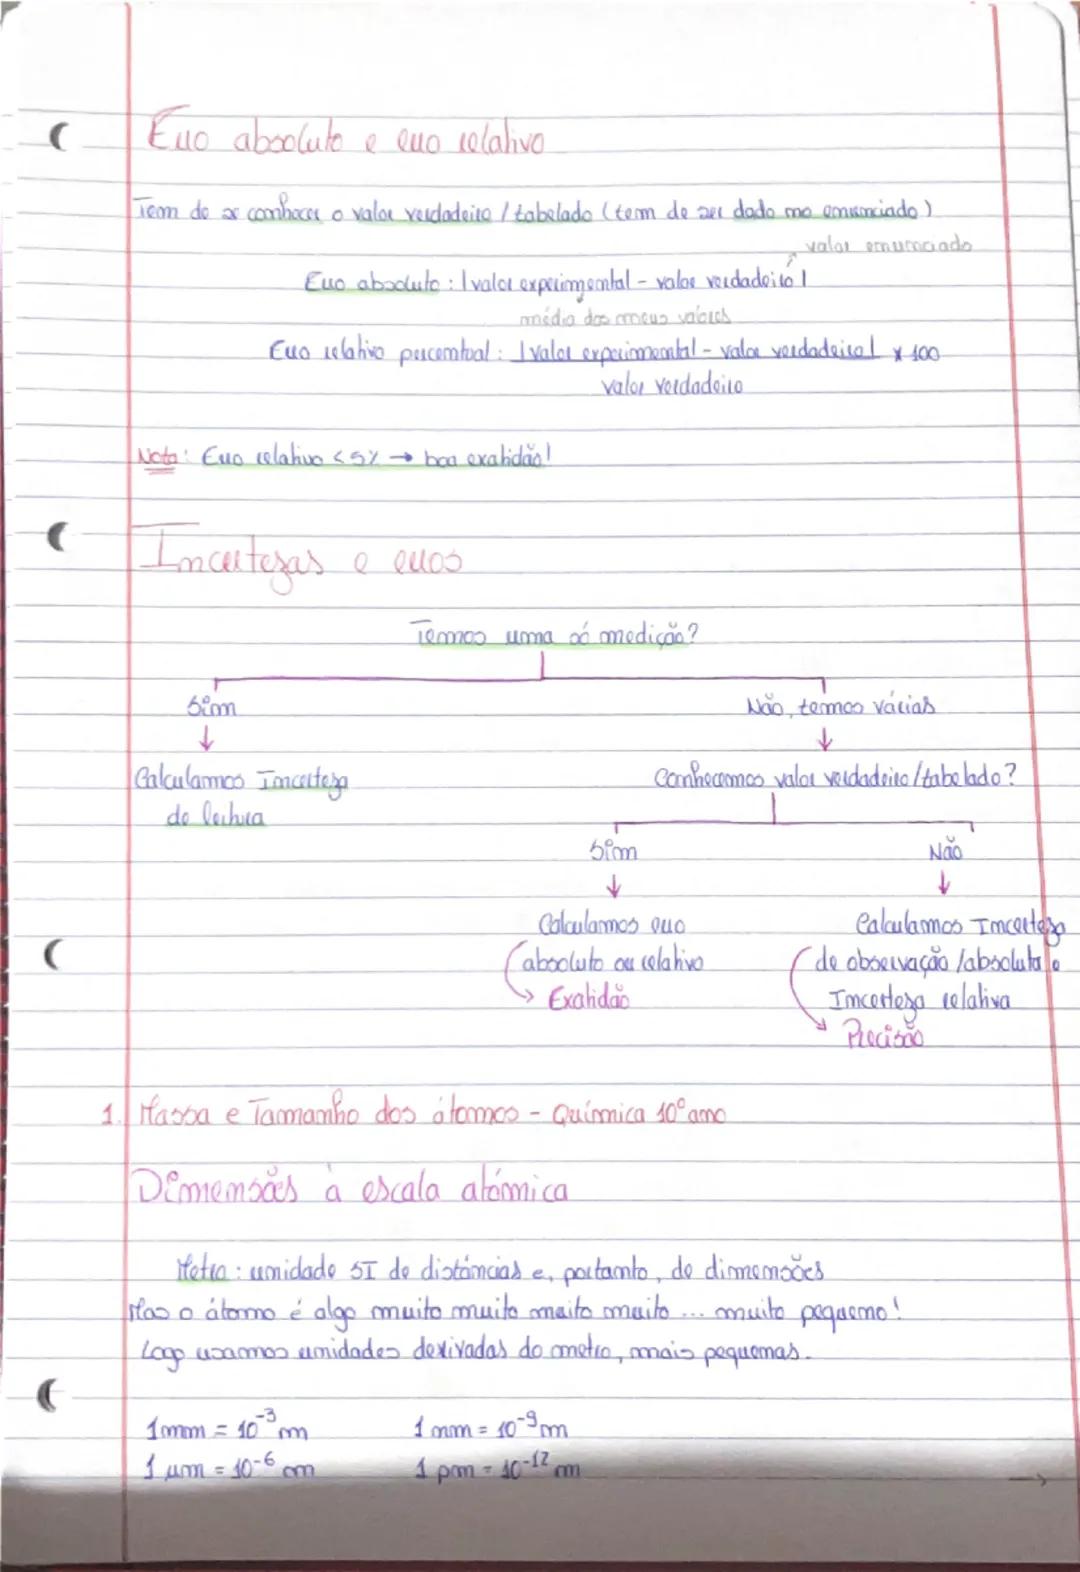 Erro absoluto e erro relativo
Tem de se conhecer o valor verdadeiro / tabelado (tem de ser dado no enunciado)
valor enunciado
Erro absoluto : |valor experimental - valor verdadeiro|
média dos meus valores
Erro relativo percentual : |valor experimental - valor verdadeiro| x 100
valor verdadeiro
Nota: Erro relativo < 5% → boa exatidão!
Incertezas e erros
Temos uma só medição?
Sim Não, temos várias
↓ ↓
Calculamos Incerteza Conhecemos valor verdadeiro/tabelado?
de leitura
Sim Não
↓ ↓
Calculamos erro Calculamos Incerteza
absoluto ou relativo de observação /absoluta e
→ Exatidão Incerteza relativa
→ Precisão
1. Massa e Tamanho dos átomos - Química 10º ano
Dimensões à escala atómica
Metro : unidade SI de distâncias e, portanto, de dimensões
Mas o átomo é algo muito muito muito muito ... muito pequeno!
Logo usamos unidades derivadas do metro, mais pequenas.
1 mm = 10⁻³ m 1 nm = 10⁻⁹ m
1 µm = 10⁻⁶ m 1 pm = 10⁻¹² m
→